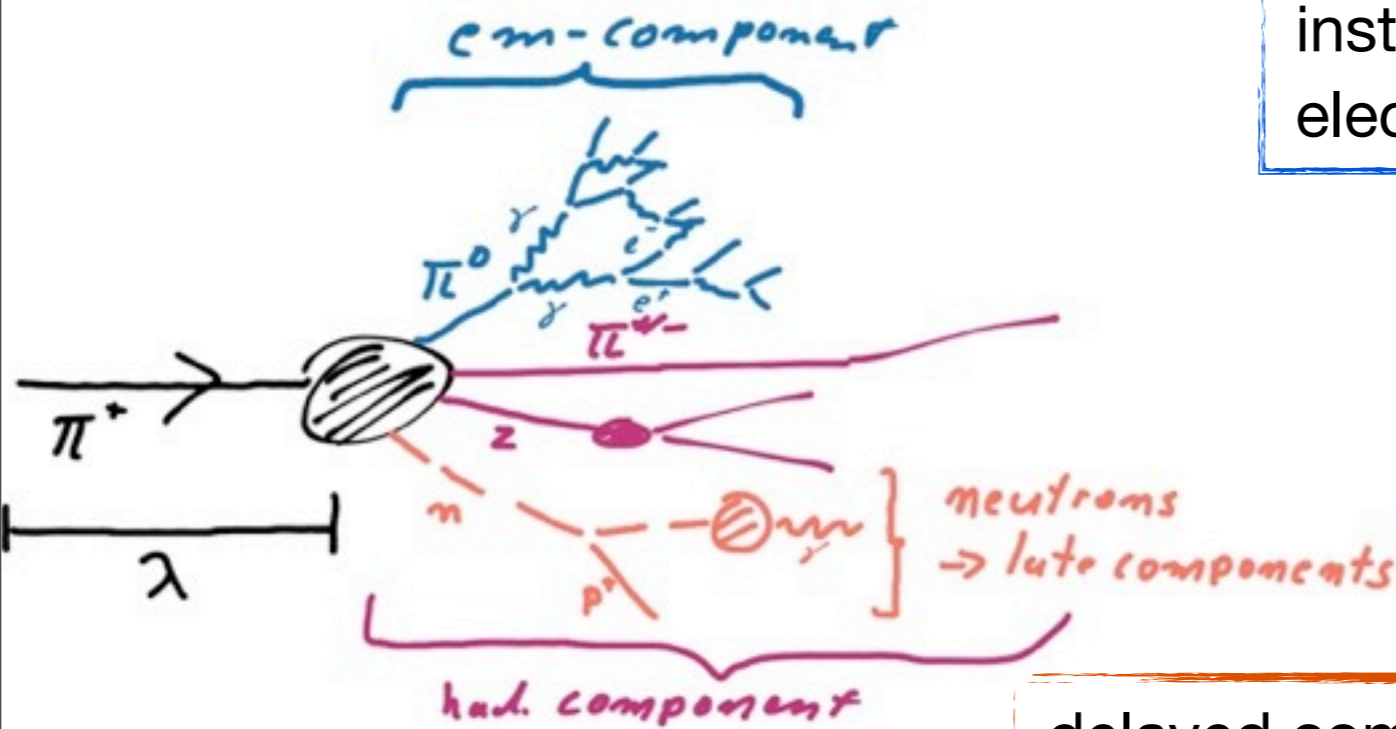 em-component
inst
elec
γ
π⁰
e⁻
γ
e⁺
π⁺/⁻
π⁺
z
n
neutrons
→ late components
γ
p⁺
λ
had. component
delayed com